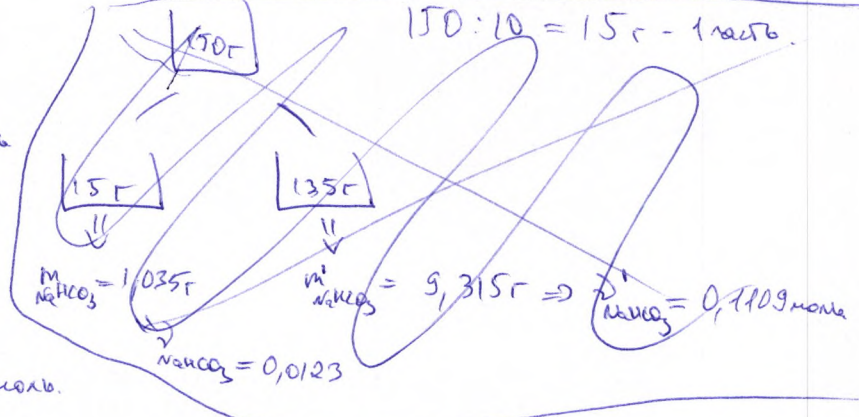 150г
150 : 10 = 15г - 1 часть.
15г
135г
m NaHCO₃ = 1,035г
m' NaHCO₃ = 9,315г ⇒ ν' NaHCO₃ = 0,1109 моль
ν NaHCO₃ = 0,0123
моль.